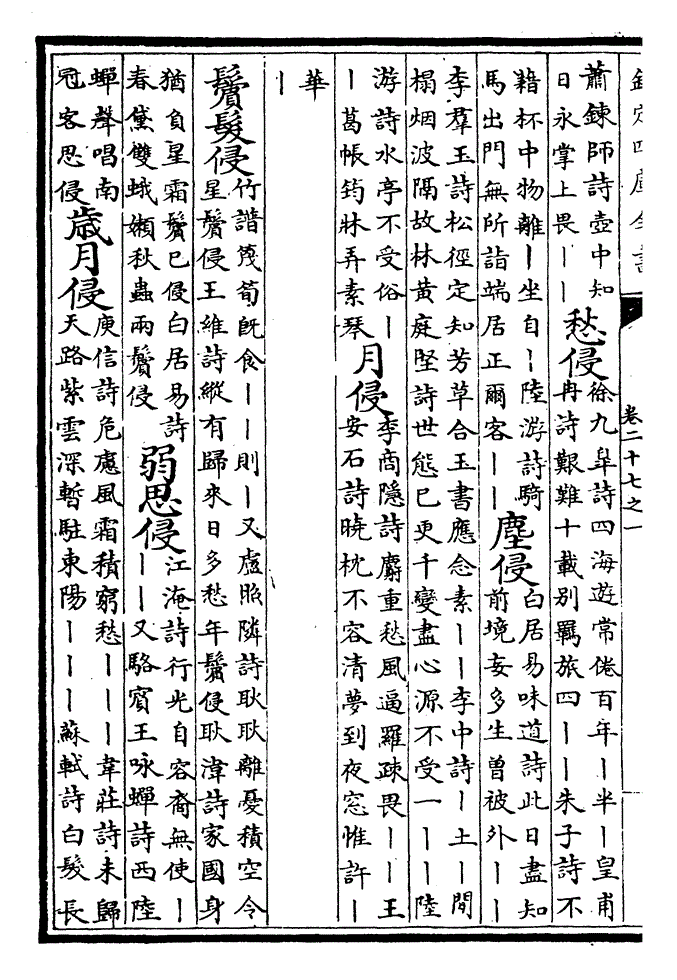 欽定四庫全書
卷二十七之一
蕭鍊師詩壺中知
日永掌上畏丨丨
愁侵
徐九臯詩四海遊常倦百年丨半丨皇甫
冉詩艱難十載别羈旅四丨丨朱子詩不
籍杯中物離丨坐自丨陸游詩騎
馬出門無所詣端居正爾客丨丨
塵侵
白居易味道詩此日盡知
前境妄多生曽被外丨丨
李羣玉詩松徑定知芳草合玉書應念素丨丨李中詩丨土丨閒
榻烟波隔故林黄庭堅詩世態已更千變盡心源不受一丨丨丨陸
游詩水亭不受俗丨
丨葛帳筠牀弄素琴
月侵
李商隱詩麝重愁風逼羅疎畏丨丨王
安石詩曉枕不容清夢到夜窓惟許丨
華
丨
鬢髮侵
竹譜篾筍既食丨丨則丨又盧照隣詩耿耿離憂積空令
星鬢侵王維詩縱有歸來日多愁年鬢侵耿湋詩家國身
猶負星霜鬢已侵白居易詩
春黛雙蛾嬾秋蟲兩鬢侵
弱思侵
江淹詩行光自容裔無使丨
丨丨又駱賓王咏蟬詩西陸
蟬聲唱南
冠客思侵
歲月侵
庾信詩危慮風霜積窮愁丨丨丨韋莊詩未歸
天路紫雲深暫駐東陽丨丨丨蘇軾詩白髮長